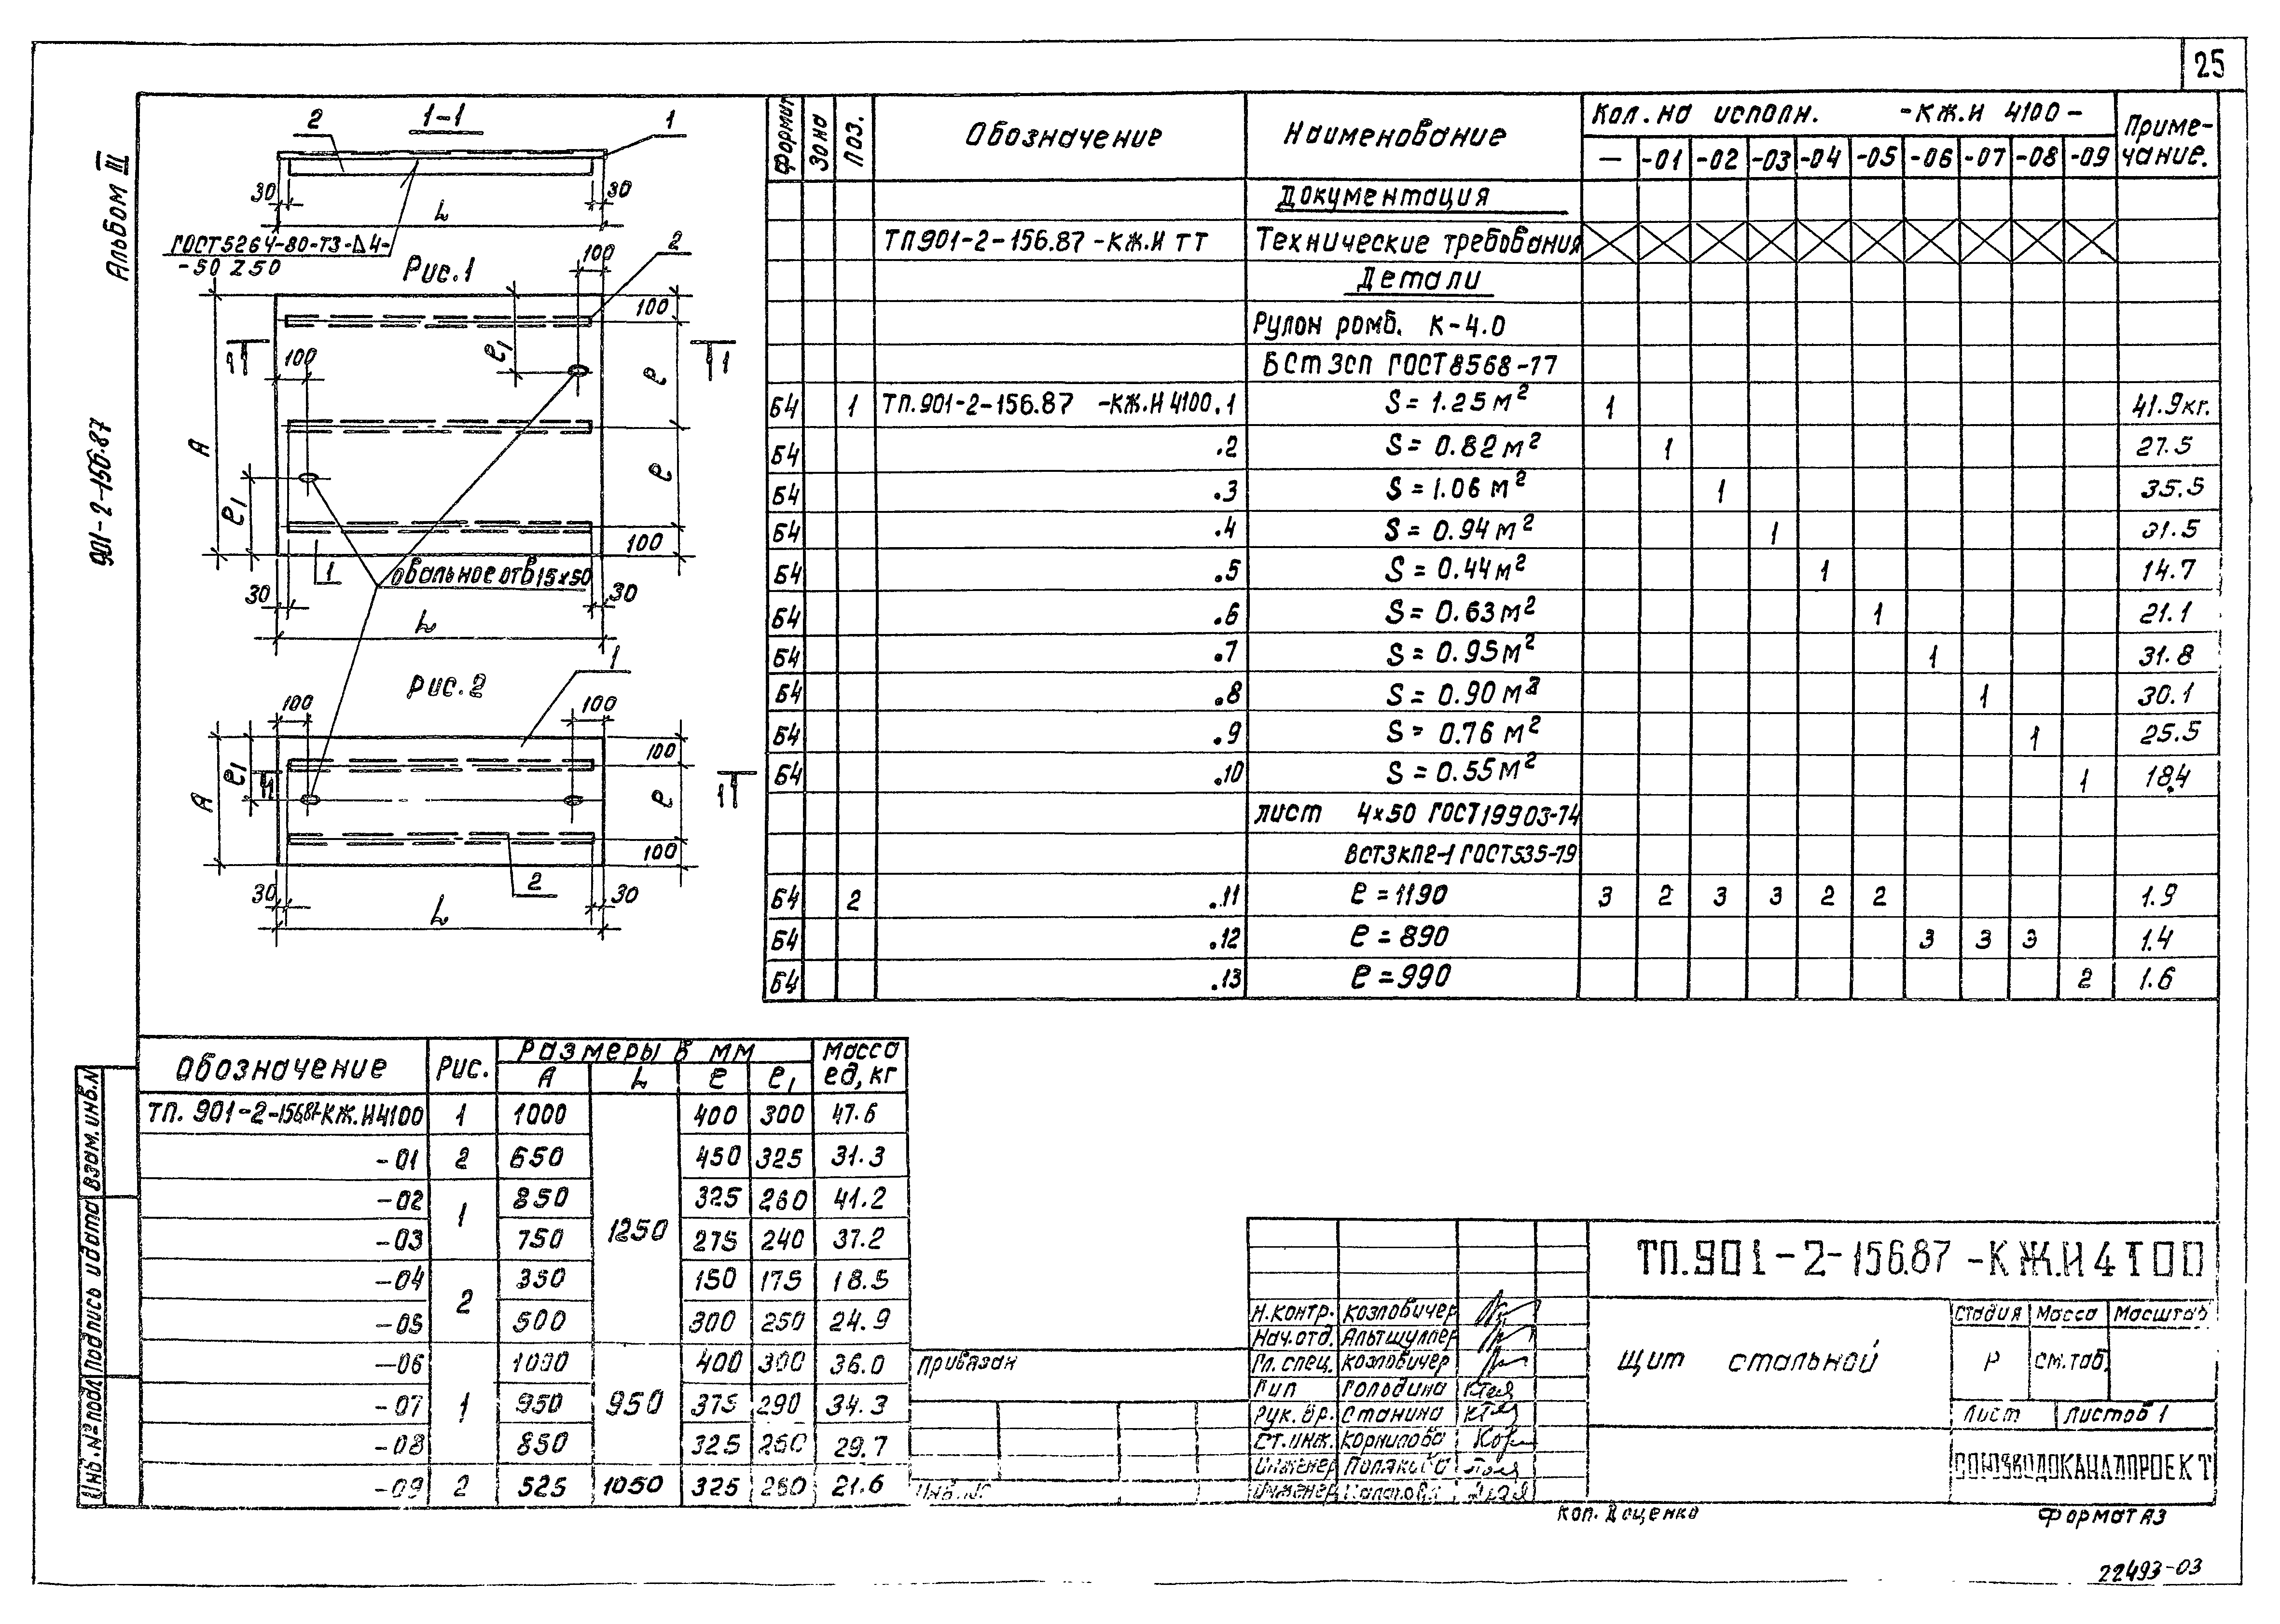 25
Альбом III
901-2-156.87
1-1
2
1
30
30
L
ГОСТ5264-80-Т3-Δ4-
-50 Z 50
Рис.1
100
2
100
100
1
1
A
e1
e
e
e1
100
1
овальное отв 15×50
30
30
L
Рис.2
1
100
100
100
e1
1
1
A
e
100
2
30
30
L
Формат
Зона
Поз.
Обозначение
Наименование
Кол. на исполн. -КЖ.И 4100-
Приме-
чание.
— -01 -02 -03 -04 -05 -06 -07 -08 -09
Документация
ТП901-2-156.87 -КЖ.И ТТ Технические требования
Детали
Рулон ромб. К-4.0
БСт3сп ГОСТ8568-77
Б4 1 ТП.901-2-156.87 -КЖ.И 4100.1 S = 1.25 м2 1 41.9кг.
Б4 .2 S = 0.82 м2 1 27.5
Б4 .3 S = 1.06 м2 1 35.5
Б4 .4 S = 0.94 м2 1 31.5
Б4 .5 S = 0.44 м2 1 14.7
Б4 .6 S = 0.63 м2 1 21.1
Б4 .7 S = 0.95 м2 1 31.8
Б4 .8 S = 0.90 м2 1 30.1
Б4 .9 S = 0.76 м2 1 25.5
Б4 .10 S = 0.55 м2 1 18.4
лист 4×50 ГОСТ19903-74
ВСТ3КП2-1 ГОСТ535-79
Б4 2 .11 e = 1190 3 2 3 3 2 2 1.9
Б4 .12 e = 890 3 3 3 1.4
Б4 .13 e = 990 2 1.6
Обозначение Рис. Размеры в мм Масса
ед, кг
A L e e1
ТП. 901-2-156.87-КЖ.И4100 1 1000 400 300 47.6
-01 2 650 450 325 31.3
-02 1 850 325 260 41.2
-03 750 1250 275 240 37.2
-04 2 350 150 175 18.5
-05 500 300 250 24.9
-06 1000 400 300 36.0
-07 1 950 950 375 290 34.3
-08 850 325 260 29.7
-09 2 525 1050 325 260 21.6
Взам. инв. N
Подпись и дата
Инв. № подл.
Привязан
Инв. №
ТП.901-2-156.87 -КЖ.И 4100
Н.контр. Козловичер
Нач.отд. Альтшуллер
Гл. спец. Козловичер
Гип Голодина
Рук. бр. Станина
Ст. инж. Корнилова
Инженер Полякова
Инженер
Щит стальной
Стадия Масса Масштаб
Р см.таб.
Лист Листов 1
СОЮЗВОДОКАНАЛПРОЕКТ
Коп. Доценко
Формат А3
22493-03